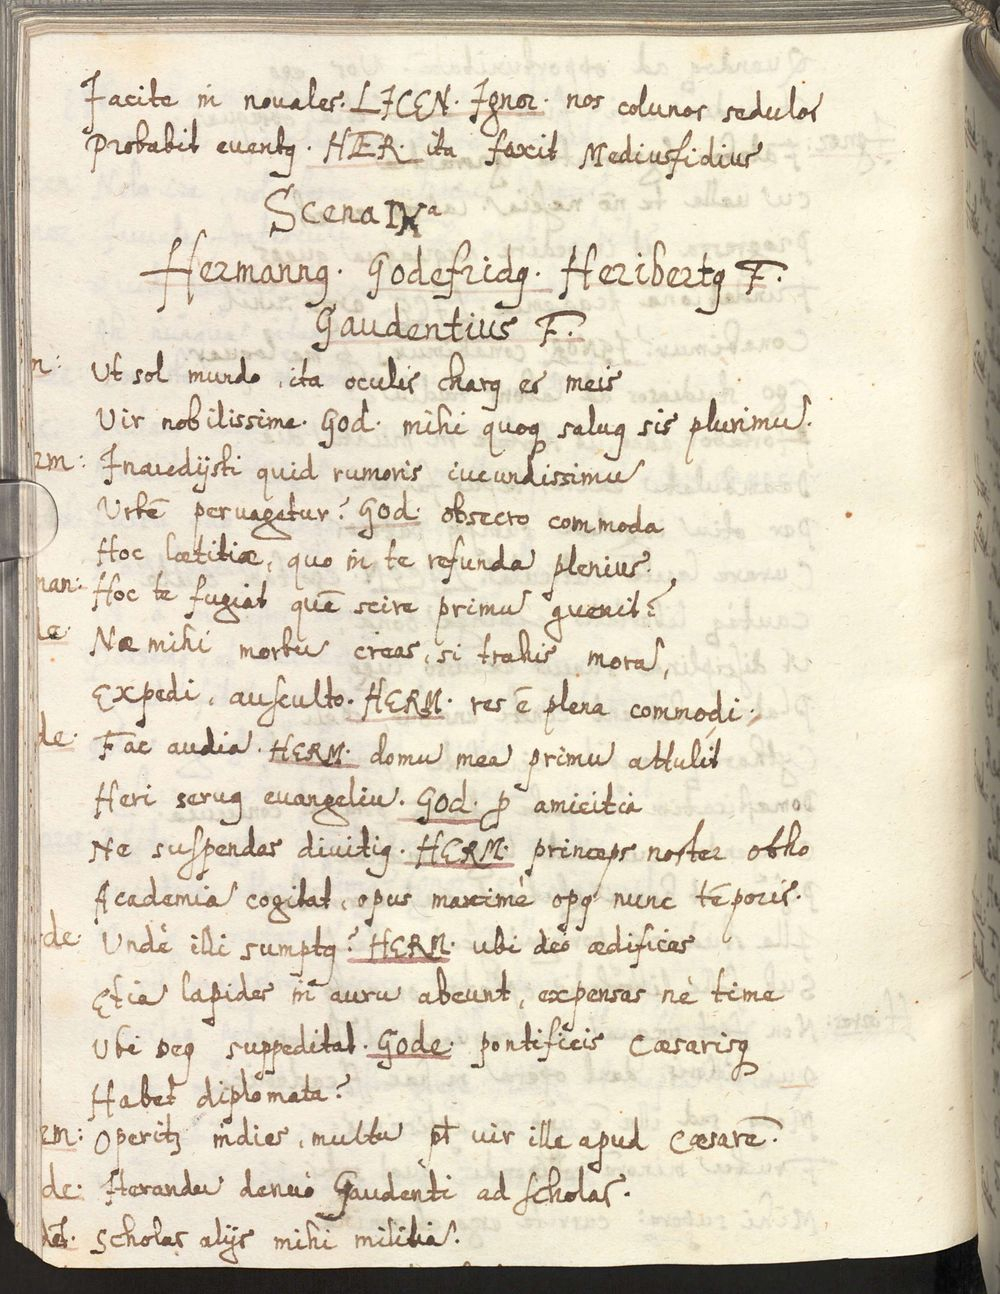 Jacite in nouales. LICEN. Ignor. nos colunos sedulos
Probabit euentꝯ. HÆR. ita faxit Mediusfidius
Scena IVª
Hermannꝯ. Godefridꝯ. Heribertꝯ F.
Gaudentius F.
m: Ut sol mundo, ita oculis charꝯ es meis
Vir nobilissime. God. mihi quoqꝫ salug sis plurimū.
rm: Inaudijsti quid rumoris iucundissimū
Urbē peruagetur? God. obsecro commoda
Hoc lætitiæ, quo in te refunda plenius.
man: Hoc te fugiat quē scire primū ꝯuenit?
de: Næ mihi morbū creas, si trahis moras,
Expedi, ausculto. HERM. res ē plena commodi.
de: Fac audia. HERM. domū mea primū attulit
Heri seruꝯ euangeliū. God. ꝓ amicitia
Ne suspendas diutiꝯ. HERM. princeps noster otho
Academiā cogitat, opus maximè opꝯ nunc tēporis.
de: Undè illi sumptꝯ? HERM. ubi deo ædificas
Etiā lapides in aurū abeunt, expensas nè time
Ubi Deꝯ suppeditat. Gode. pontificis Cæsarisqꝫ
Habet diplomata?
rm: Operitꝫ indies, multū pt uir ille apud Cæsarē.
de: Iterandū denuò Gaudenti ad scholas.
Scholas alijs mihi militiā.